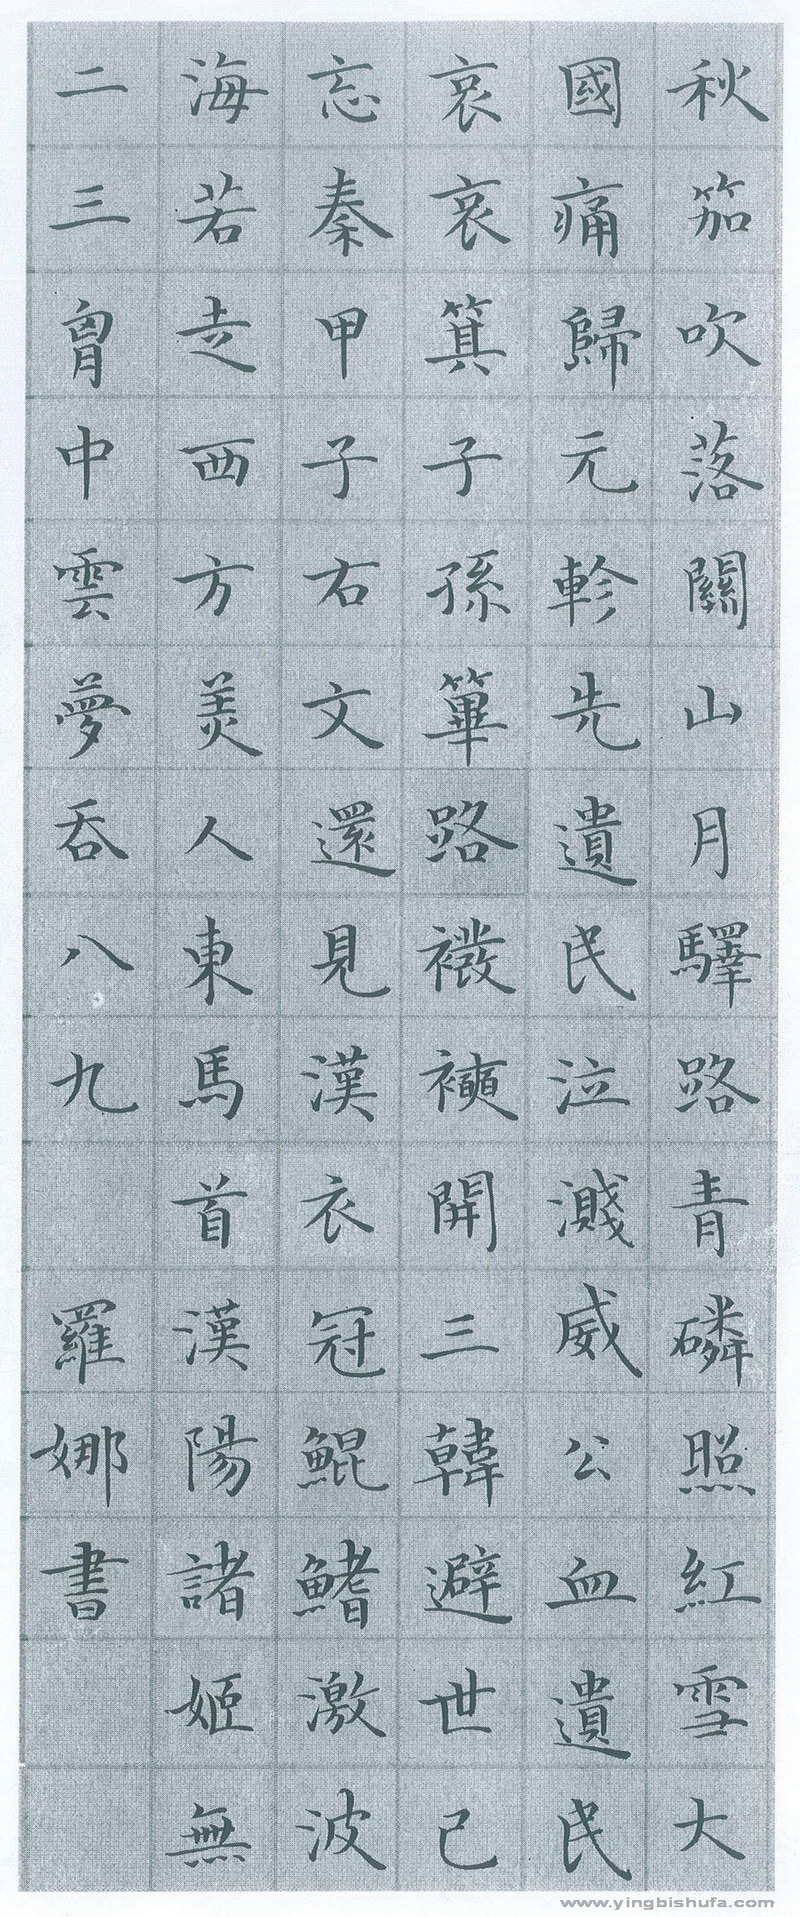 秋笳吹落關山月驛路青磷照紅雪大
國痛歸元軫先遺民泣濺威公血遺民
哀哀箕子孫篳路襏襫開三韓避世已
忘秦甲子右文還見漢衣冠鯤鰭激波
海若走西方美人東馬首漢陽諸姬無
二三胷中雲夢吞八九
羅娜書
www.yingbishufa.com